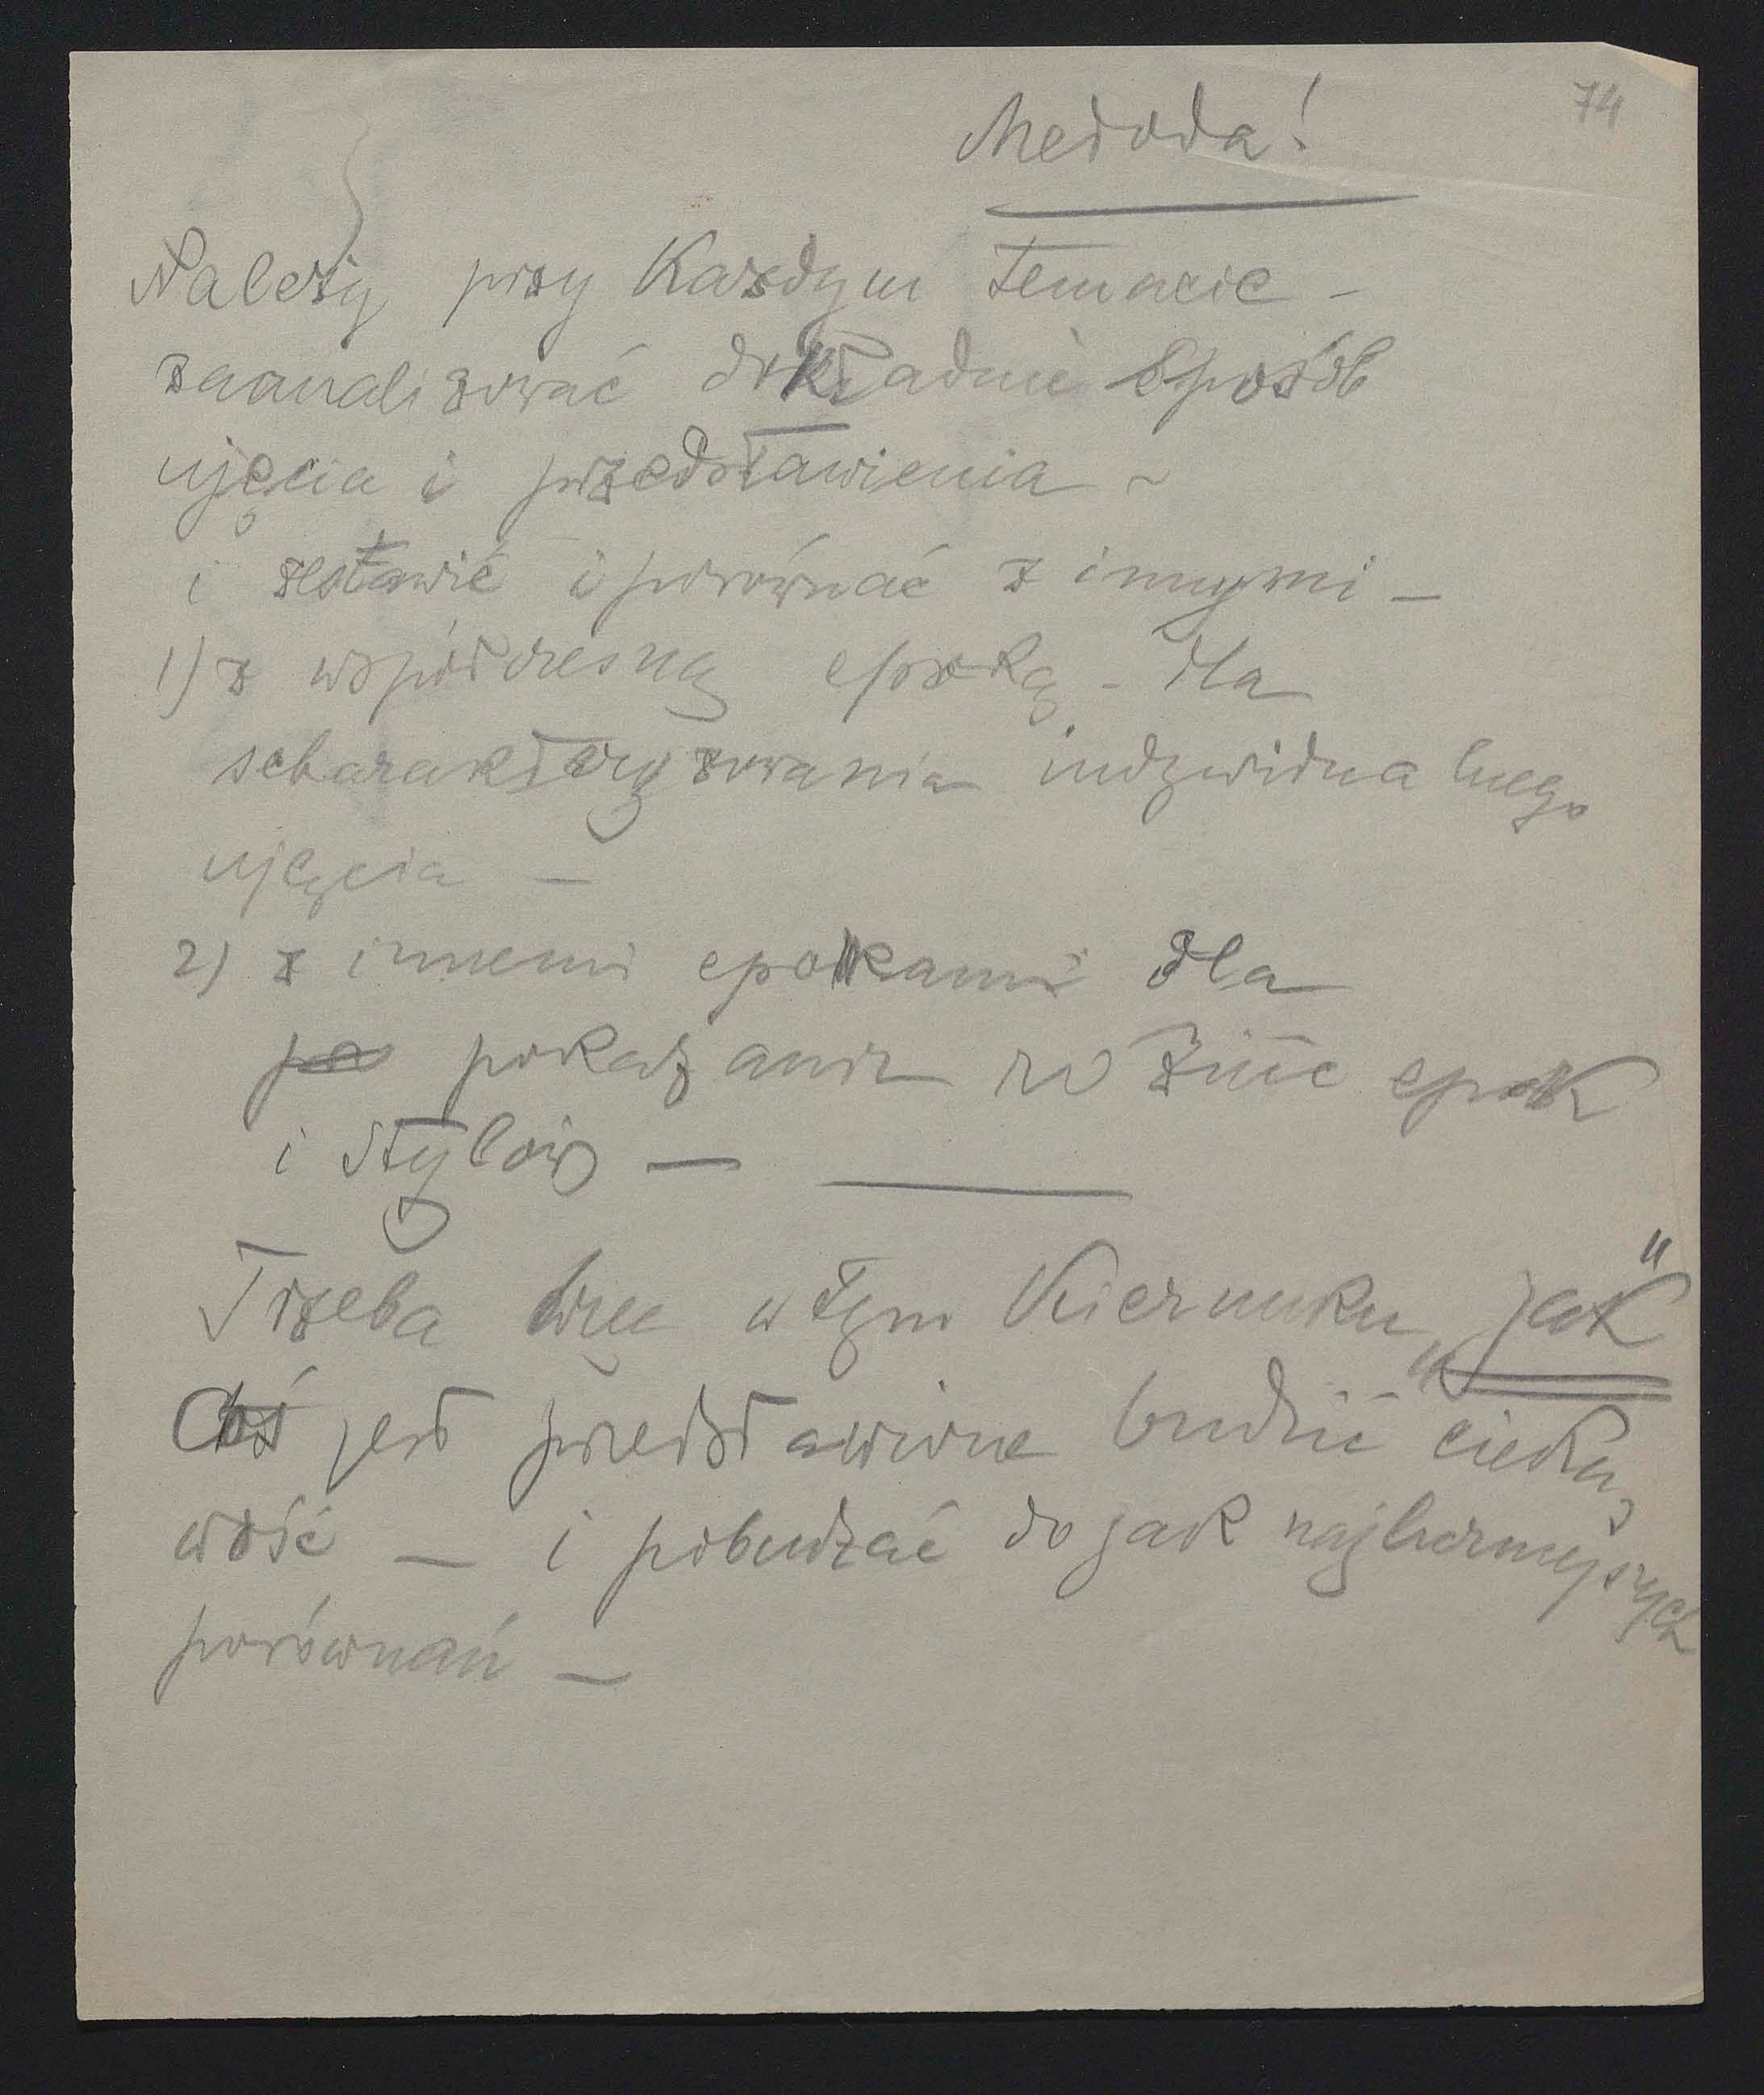 74
Metoda!
Należy przy każdym temacie –
zaanalizować dokładnie sposób
ujęcia i przedstawienia –
i zestawić i porównać z innymi –
1) z współczesną epoką – dla
scharakteryzowania indywidualnego
ujęcia –
2) z innemi epokami dla
po pokazania różnic epok
i stylów –
Trzeba więc w tym kierunku „jak"
coś jest przedstawione budzić cieka-
wość – i pobudzać do jak najliczniejszych
porównań –